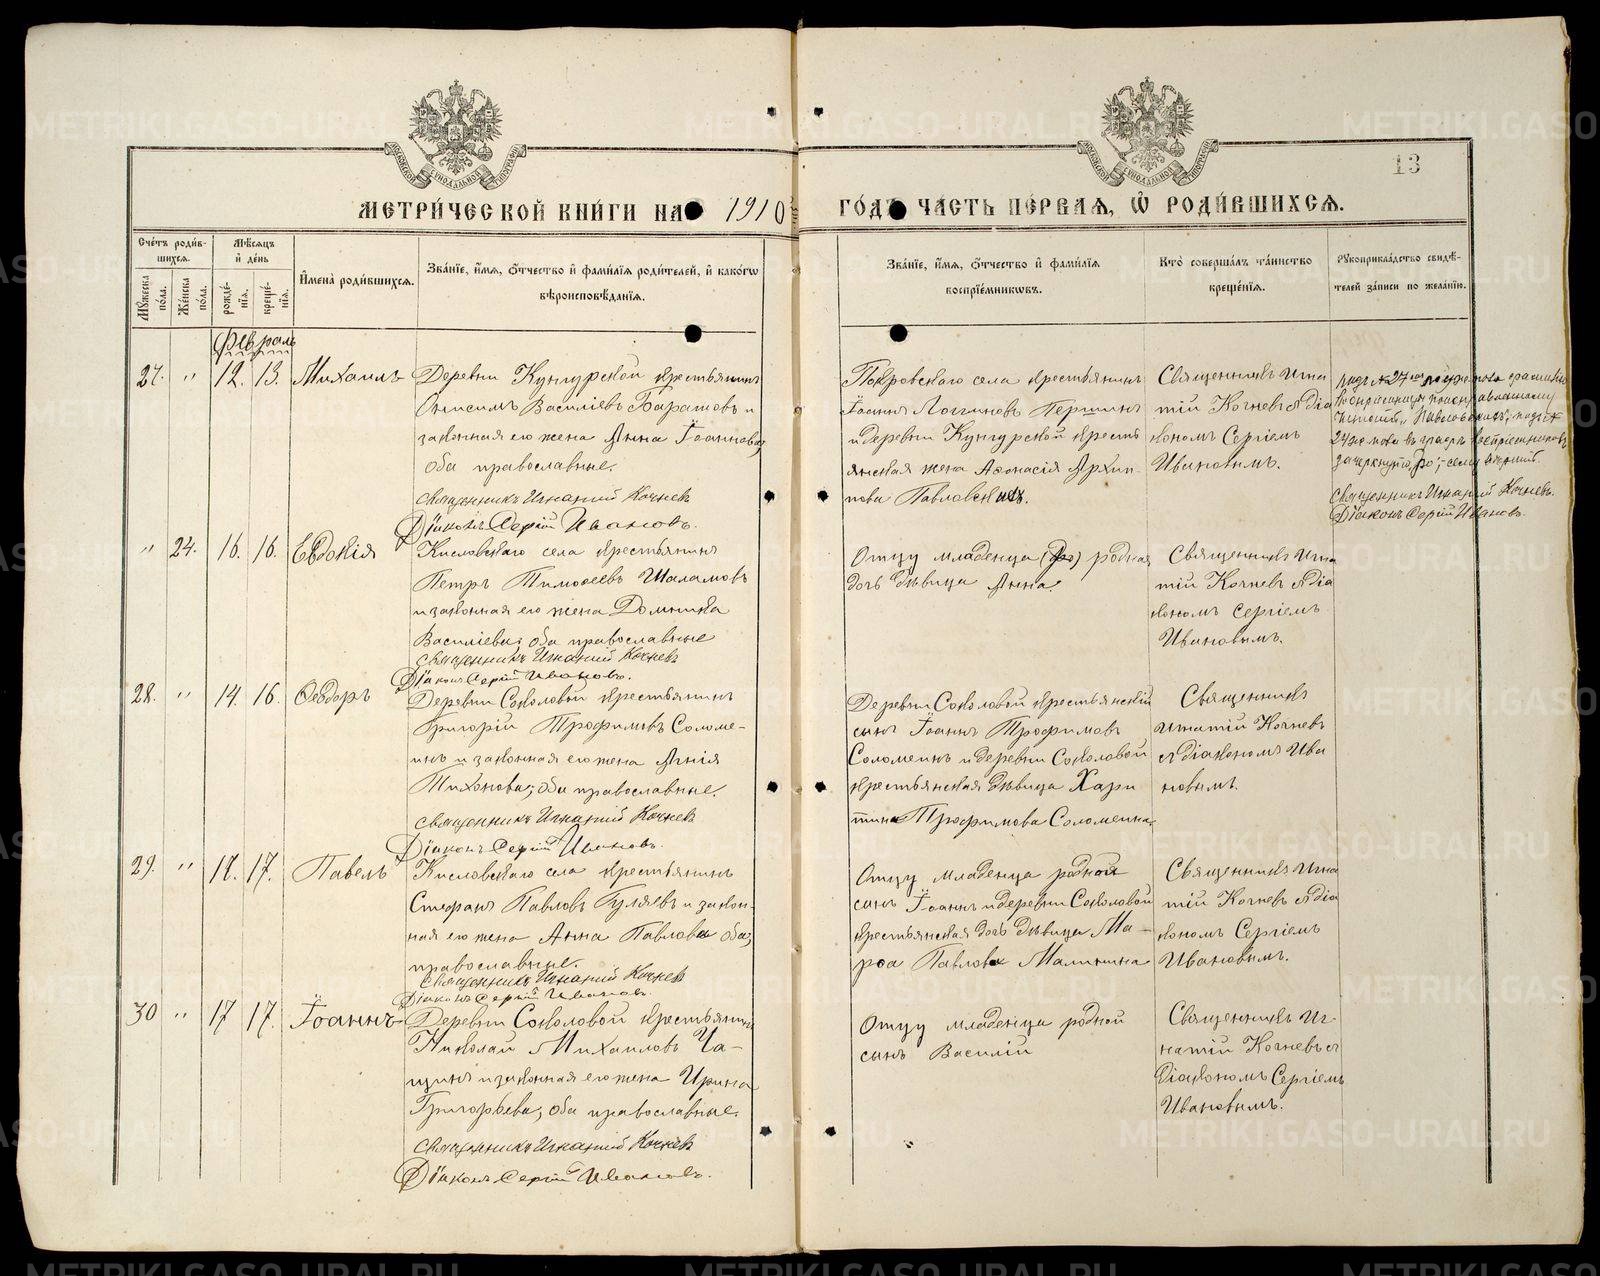 13
МЕТРИЧЕСКОЙ КНИГИ НА 1910 ГОДЪ ЧАСТЬ ПЕРВАЯ, Ѽ РОДИВШИХСЯ.
Счетъ родив-
шихся.
Мужеска
пола.
Женска
пола.
Мѣсяцъ
и день
рожде-
нія.
креще-
нія.
Имена родившихся.
Званіе, имя, отчество и фамилія родителей, и какогѡ
вѣроисповѣданія.
Званіе, имя, отчество и фамилія
воспріемниковъ.
Кто совершалъ таинство
крещенія.
Рукоприкладство свидѣ-
телей записи по желанію.
Февраль
27. " 12. 13. Михаилъ
Деревни Кунгурской крестьянинъ
Онисимъ Василіевъ Баратовъ и
законная его жена Анна Іоаннова;
оба православные.
Священникъ Игнатій Кочневъ
Діаконъ Сергій Ивановъ.
Покровскаго села крестьянинъ
Іоаннъ Логгиновъ Першинъ
и деревни Кунгурской кресть
янская жена Аѳонасія Архип-
пова Павловскихъ.
Священникъ Игна
тій Кочневъ съ діа
кономъ Сергіемъ
Ивановымъ.
Священникъ Игнатій Кочневъ.
Діаконъ Сергій Ивановъ.
" 24. 16. 16. Евдокія
Кисловскаго села крестьянинъ
Петръ Тимоѳеевъ Шаламовъ
и законная его жена Домника
Василіева; оба православные
Священникъ Игнатій Кочневъ
Діаконъ Сергій Ивановъ.
Отцу младенца родная
дочь дѣвица Анна.
Священникъ Игна
тій Кочневъ съ діа
кономъ Сергіемъ
Ивановымъ.
28. " 14. 16. Ѳеодоръ
Деревни Соколовой крестьянинъ
Григорій Трофимовъ Соломе-
инъ и законная его жена Агнія
Тихонова; оба православные.
Священникъ Игнатій Кочневъ
Діаконъ Сергій Ивановъ.
Деревни Соколовой крестьянскій
сынъ Іоаннъ Трофимовъ
Соломеинъ и деревни Соколовой
крестьянская дѣвица Хари
тина Трофимова Соломеина.
Священникъ
Игнатій Кочневъ
съ діакономъ Ива
новымъ.
29. " 17. Павелъ
Кисловскаго села крестьянинъ
Стефанъ Павловъ Гуляевъ и закон-
ная его жена Анна Павлова оба;
православные.
Священникъ Игнатій Кочневъ
Діаконъ Сергій Ивановъ.
Отцу младенца родной
сынъ Іоаннъ и деревни Соколовой
крестьянская дочь дѣвица Ма-
рѳа Павлова Малинина
Священникъ Игна
тій Кочневъ съ діа
кономъ Сергіемъ
Ивановымъ.
30 " 17 17. Іоаннъ
Деревни Соколовой крестьянинъ
Николай Михаиловъ Ча-
щинъ и законная его жена Ирина
Григорьева; оба православные.
Священникъ Игнатій Кочневъ
Діаконъ Сергій Ивановъ.
Отцу младенца родной
сынъ Василій
Священникъ Иг-
натій Кочневъ съ
діакономъ Сергіемъ
Ивановымъ.
METRIKI.GASO-URAL.RU